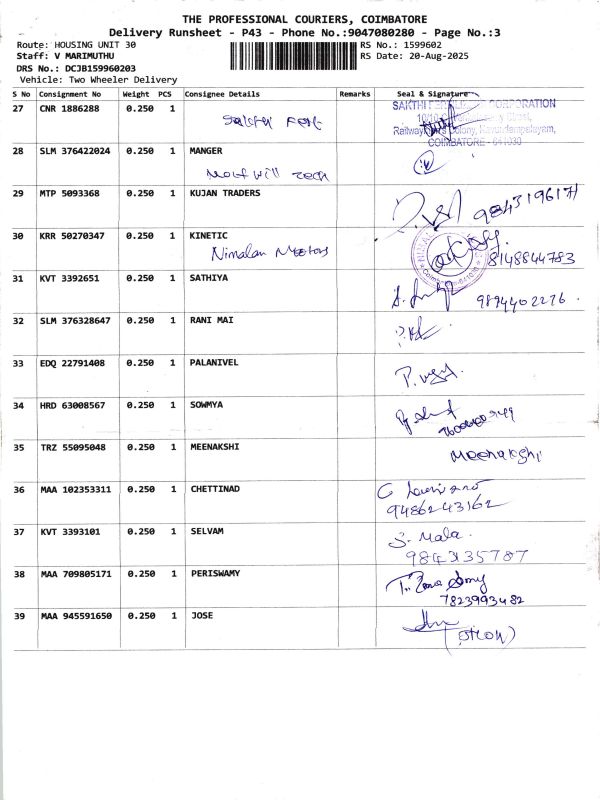 THE PROFESSIONAL COURIERS, COIMBATORE
Delivery Runsheet - P43 - Phone No.:9047080280 - Page No.:3
Route: HOUSING UNIT 30 RS No.: 1599602
Staff: V MARIMUTHU RS Date: 20-Aug-2025
DRS No.: DCJB159960203
Vehicle: Two Wheeler Delivery
S No Consignment No Weight PCS Consignee Details Remarks Seal & Signature
27 CNR 1886288 0.250 1 SAKTHI CORPORATION
Railway Colony,
COIMBATORE - 641030
28 SLM 376422024 0.250 1 MANGER
29 MTP 5093368 0.250 1 KUJAN TRADERS 9843196171
30 KRR 50270347 0.250 1 KINETIC
Nimalan Motors 8148844783
31 KVT 3392651 0.250 1 SATHIYA 9894402276
32 SLM 376328647 0.250 1 RANI MAI
33 EDQ 22791408 0.250 1 PALANIVEL
34 HRD 63008567 0.250 1 SOWMYA
35 TRZ 55095048 0.250 1 MEENAKSHI Meenakshi
36 MAA 102353311 0.250 1 CHETTINAD
9486243162
37 KVT 3393101 0.250 1 SELVAM S. Mala
9843135787
38 MAA 709805171 0.250 1 PERISWAMY
7823993482
39 MAA 945591650 0.250 1 JOSE